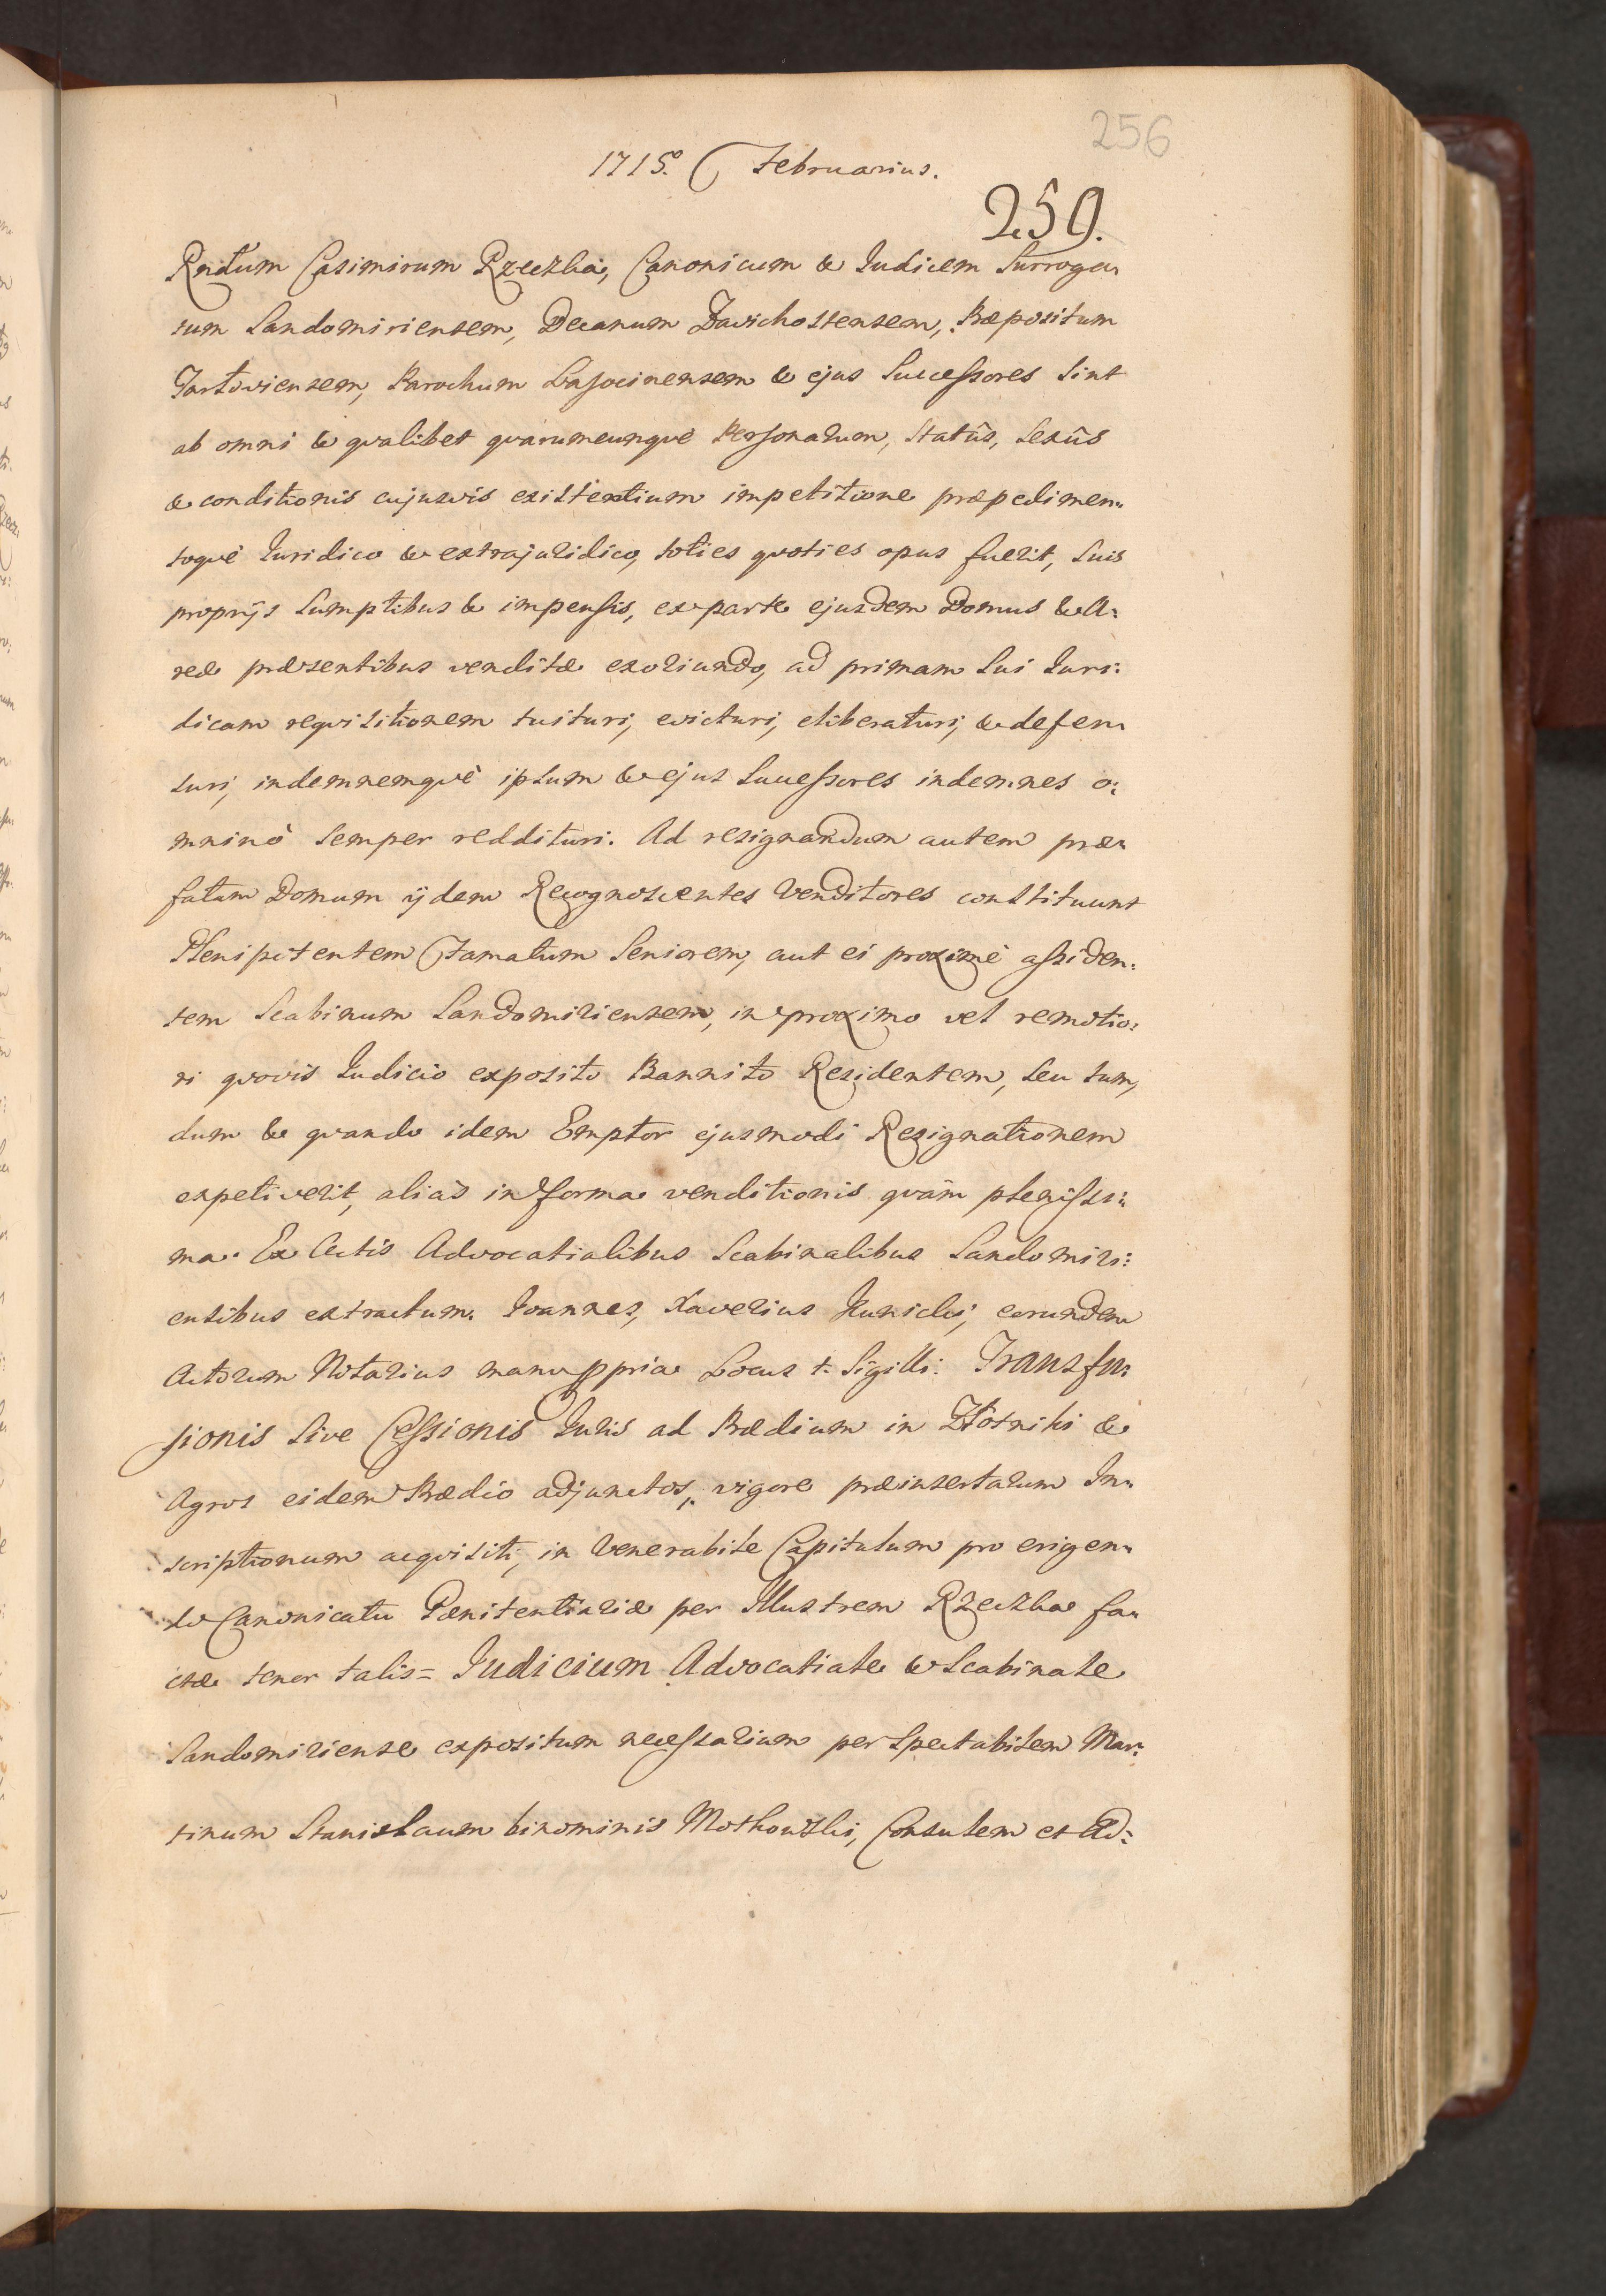 256
1715º. Februarius.
259.
Rndum Casimirum Rzeczka, Canonicum & Judicem Surroga„
tum Sandomiriensem, Decanum Zavichostensem, Præpositum
Tarłoviensem, Parochum Lasocinensem & ejus Successores sint
ab omni & qvalibet qvarumcunqvè Personarum, Statûs, Sexûs
& conditionis cujusvis existentium impetitione præpedimen„
toqvè Juridico & extrajuridico, toties qvoties opus fuerit, suis
proprijs Sumptibus & impensis, ex parte ejusdem Domus & A:
reæ præsentibus venditæ exoriundo, ad primam sui Juri:
dicam reqvisitionem tuituri, evicturi, eliberaturi, & defen„
suri, indemnemqvè ipsum & ejus Successores indemnes o:
mninò semper reddituri. Ad resignandum autem præ„
fatam Domum ijdem Recognoscentes Venditores constituunt
Plenipotentem Famatum Seniorem, aut ei proximè assiden:
tem Scabinum Sandomiriensem, in proximo vel remotio:
ri qvovis Judicio exposito Bannito Residentem, seu tum,
dum & qvando idem Emptor ejusmodi Resignationem
expetiverit, aliàs in forma venditionis qvàm plenissi:
ma. Ex Actis Advocatialibus Scabinalibus Sandomiri:
ensibus extractum. Joannes, Xaverius Kunicki, eorundem
Actorum Notarius manu ppria Locus †. Sigilli: Transfu:
sionis sive Cessionis Juris ad Prædium in Złotniki &
Agros eidem Prædio adjunctos, vigore præinsertarum In„
scriptionum acqvisiti, in Venerabile Capitulum pro erigen„
do Canonicatu Pænitentiariæ per Illustrem Rzeczka fa„
ctæ tenor talis = Judicium Advocatiale & Scabinale
Sandomiriense expositum necessarium per Spectabilem Mar:
tinum Stanislaum binominis Mothowski, Consulem et Ad: